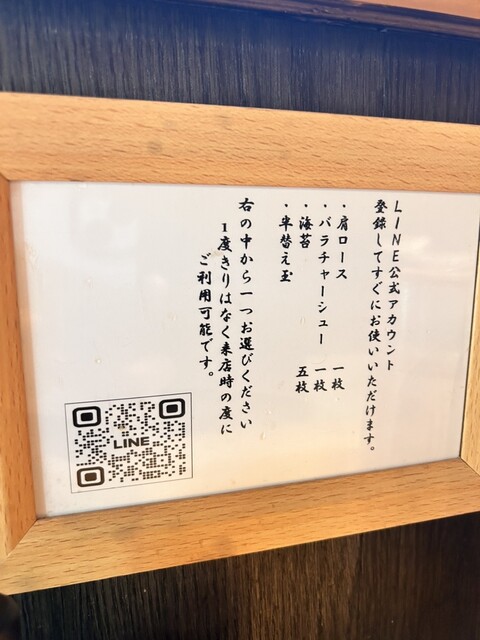 LINE公式アカウント
登録してすぐにお使いいただけます。
・肩ロース 一枚
・バラチャーシュー 一枚
・海苔 五枚
・半替え玉
右の中から一つお選びください
1度きりはなく来店時の度に
ご利用可能です。
LINE